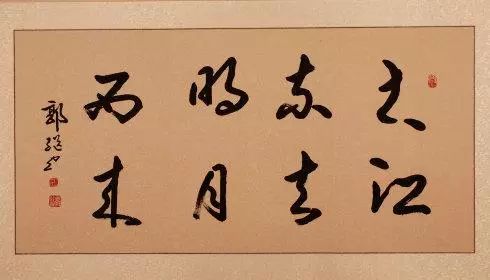 大江
东去
明月
西来
郭